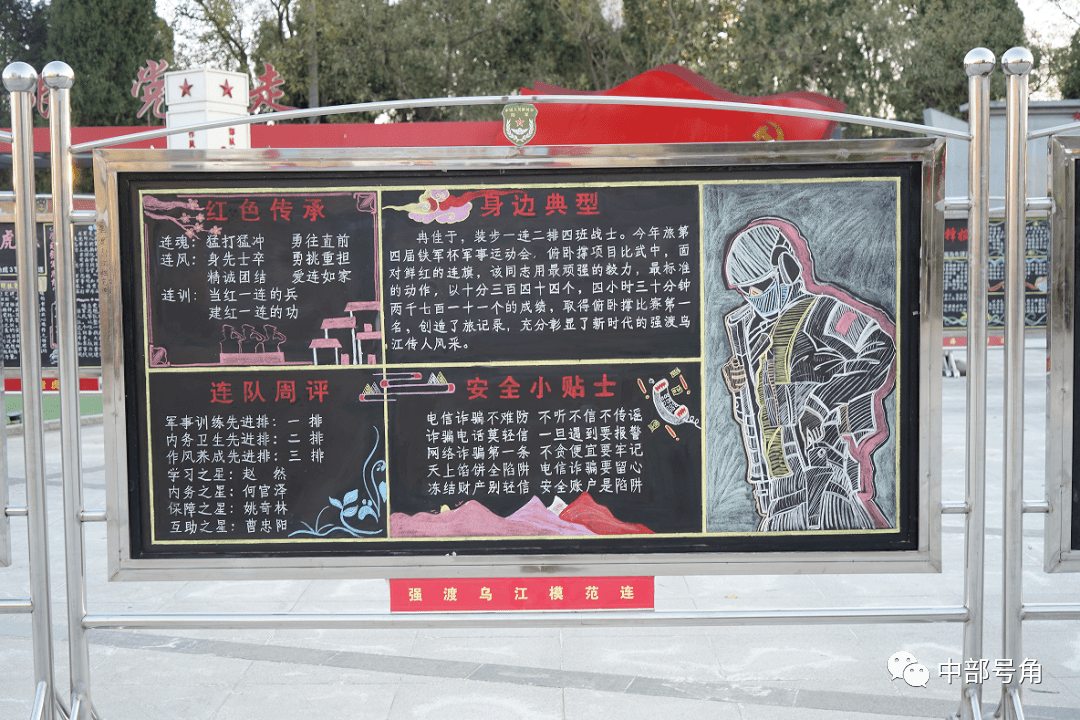 党
走
红色传承
连魂：猛打猛冲 勇往直前
连风：身先士卒 勇挑重担
精诚团结 爱连如家
连训：当红一连的兵
建红一连的功
身边典型
冉佳于，装步一连二排四班战士。今年旅第
四届铁军杯军事运动会，俯卧撑项目比武中，面
对鲜红的连旗，该同志用最顽强的毅力，最标准
的动作，以十分三百四十四个，四小时三十分钟
两千七百一十一个的成绩，取得俯卧撑比赛第一
名，创造了旅记录，充分彰显了新时代的强渡乌
江传人风采。
连队周评
军事训练先进排：一 排
内务卫生先进排：二 排
作风养成先进排：三 排
学习之星：赵 然
内务之星：何官泽
保障之星：姚奇林
互助之星：曹忠阳
安全小贴士
电信诈骗不难防 不听不信不传谣
诈骗电话莫轻信 一旦遇到要报警
网络诈骗第一条 不贪便宜要牢记
天上馅饼全陷阱 电信诈骗要留心
冻结财产别轻信 安全账户是陷阱
强渡乌江模范连
中部号角